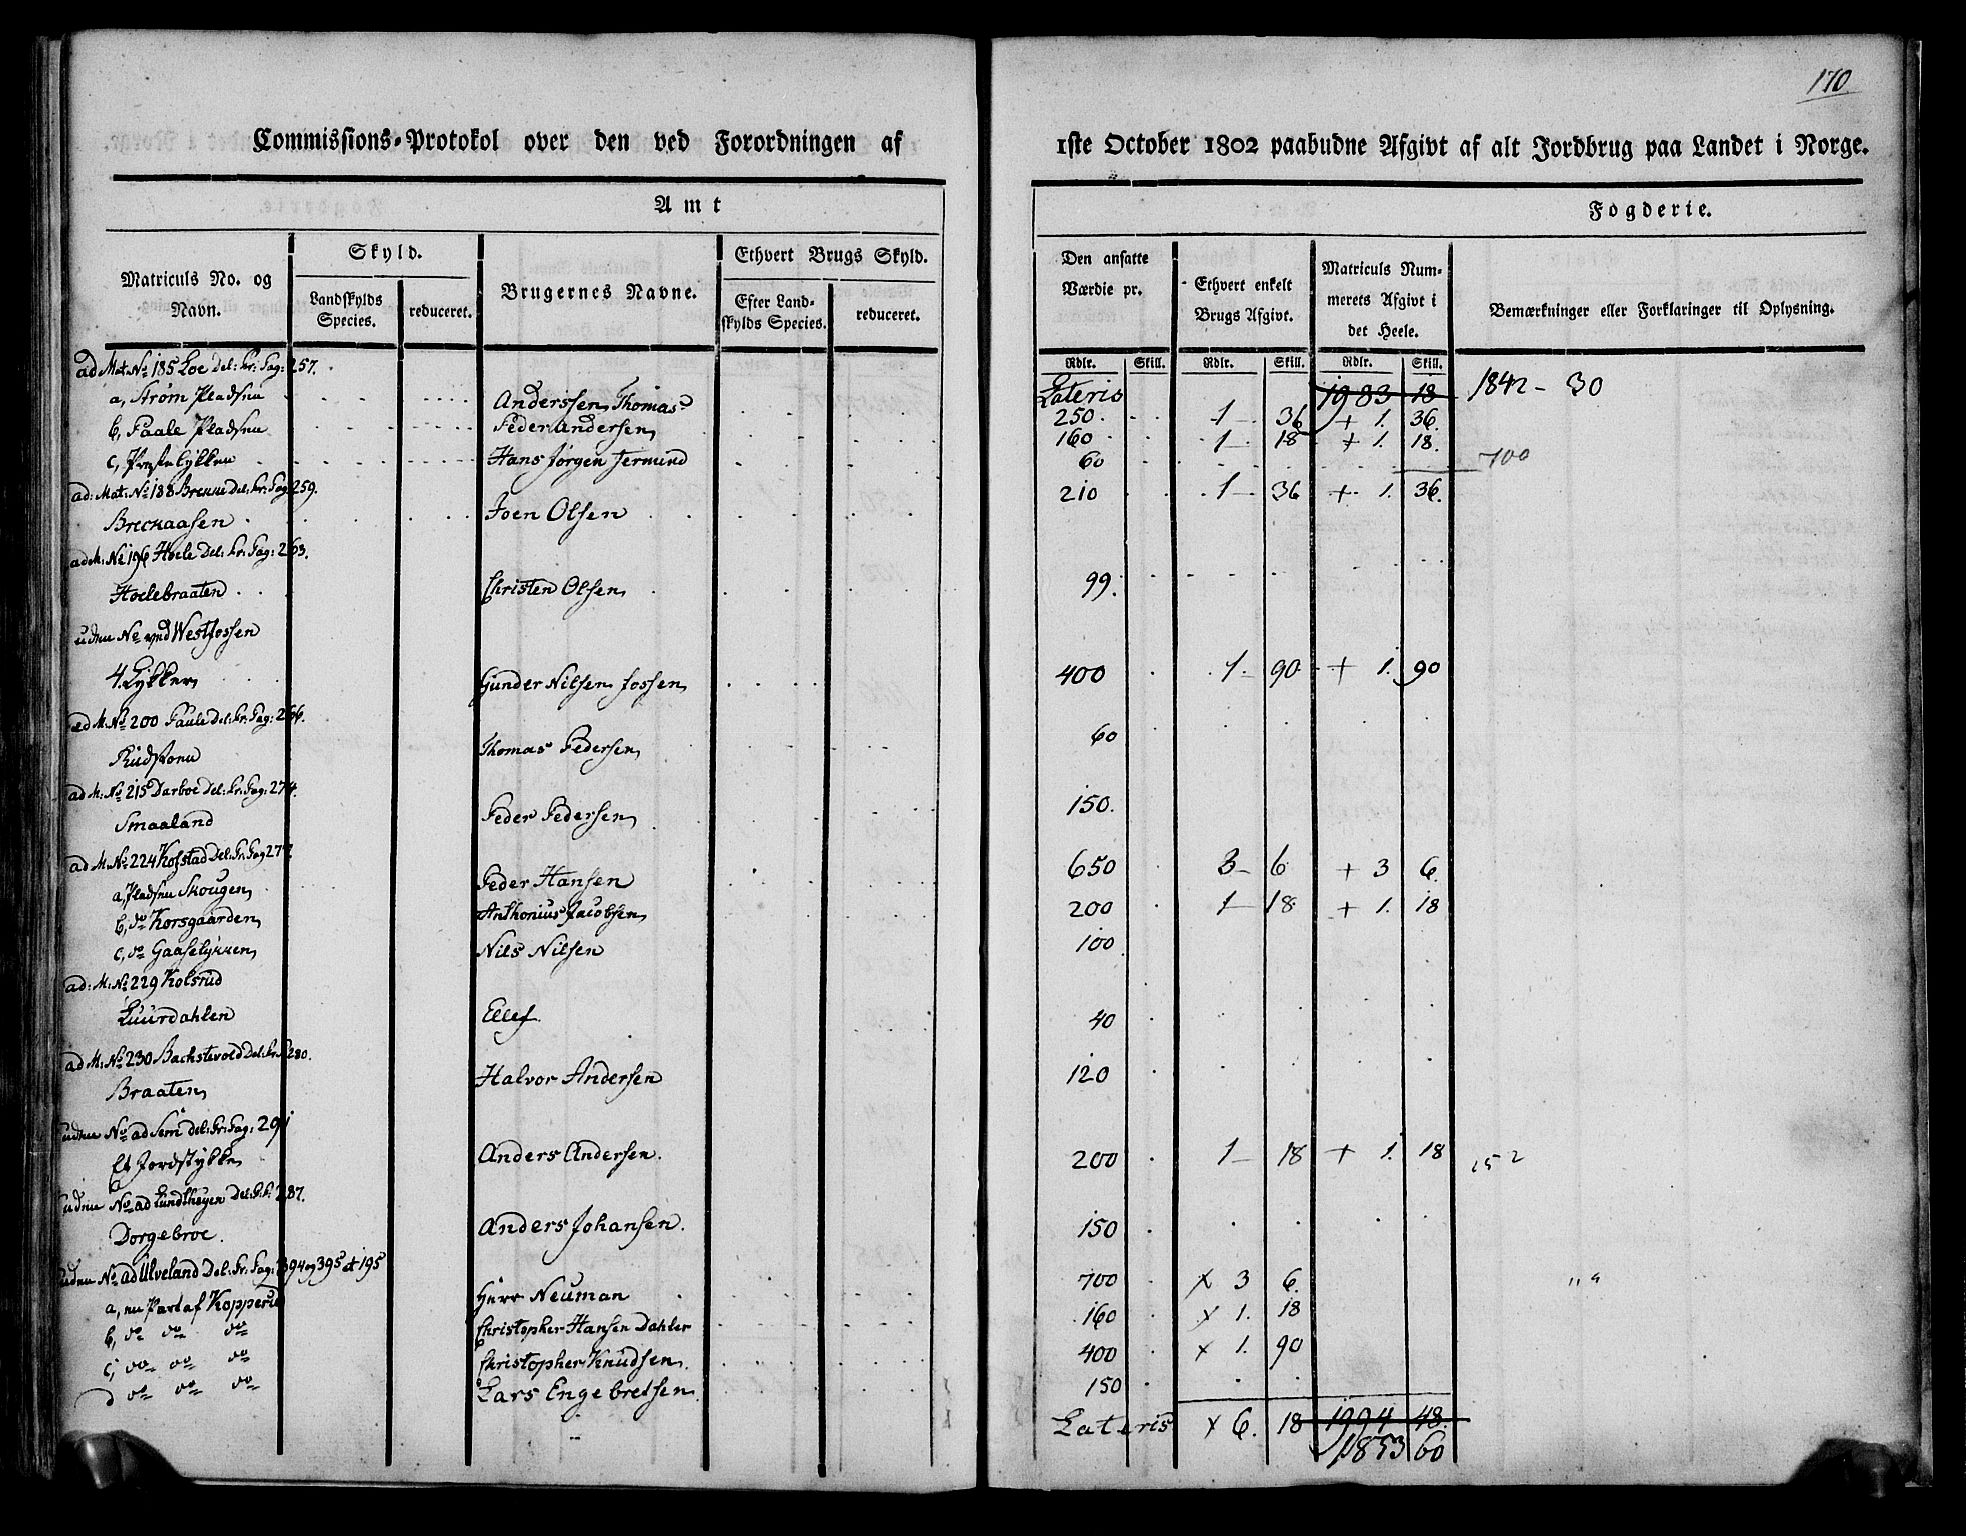 170
Commissions-Protokol over den ved Forordningen af 1ste October 1802 paabudne Afgivt af alt Jordbrug paa Landet i Norge.
Amt
Fogderie.
Matriculs No. og Navn.
Skyld.
Landskylds Species.
reduceret.
Brugernes Navne.
Ethvert Brugs Skyld.
Efter Landskylds Species.
reduceret.
Den ansatte Værdie pr.
Ethvert enkelt Brugs Afgivt.
Matriculs Nummerets Afgivt i det Heele.
Bemærkninger eller Forklaringer til Oplysning.
Rdlr. Skill. Rdlr. Skill. Rdlr. Skill.
ad Mat. No 185 Loe Del: Pr: Pag: 257.
Lateris 1983 18 1842 - 30
a, Strøm Pladsen Anderssen, Thomas 250. 1 - 36 + 1. 36.
b, Paale Pladsen Peder Andersen 160 1 - 18 + 1. 18.
c, Præstelykken Hans Jørgen Termund 60 700
ad: Mat: No 188 Brenne Del: Pr: Pag 259.
Breckaasen Joen Olsen 210 1 - 36 + 1. 36.
ad M: No 196 Hoele Del: Pr: Pag: 263.
Hoelebraaten Christen Olsen 99.
uden No ved Westfossen
4. Lykker Gunder Nilsen Fossen 400 1. 90 + 1. 90
ad M: No 200 Faale Del: Pr: Pag: 266.
Rudstoen Thomas Pedersen 60
ad M: No 215 Darboe Del: Pr: Pag: 274.
Smaaland Peder Pedersen 150.
ad M: No 224 Kolstad Del: Pr: Pag 277.
a, Pladsen Skougen Peder Hansen 650 3 - 6 + 3 6.
b, do Korsgaarden Anthonius Jacobsen 200 1 - 18 + 1. 18
c, do Gaaselykken Nils Nilsen 100
ad: M: No 229 Kolsrud
Luurdahlen Ellef 40
ad M: No 230 Bachstevold Del: Pr: P 280.
Braaten Halvor Andersen 120
uden No ad Sem del: Pr: Pag: 291
Et Jordstykke Anders Andersen. 200 1 - 18 + 1. 18 152
uden No ad Lundthøgen Del: Pr: P: 287.
Dorgebroe. Anders Johansen. 150
uden No ad Ulveland Del: Pr: Pag: 394 og 395 et 195
a, en Part af Kopperud Herr Neuman 700 x 3 6.
b, do do do Christopher Hansen Dahler 160 x 1. 18
c, do do do Christopher Knudsen. 400 x 1. 90
d do do do Lars Engebretsen 150
Lateris x 6. 18 1994 48.
1853 60